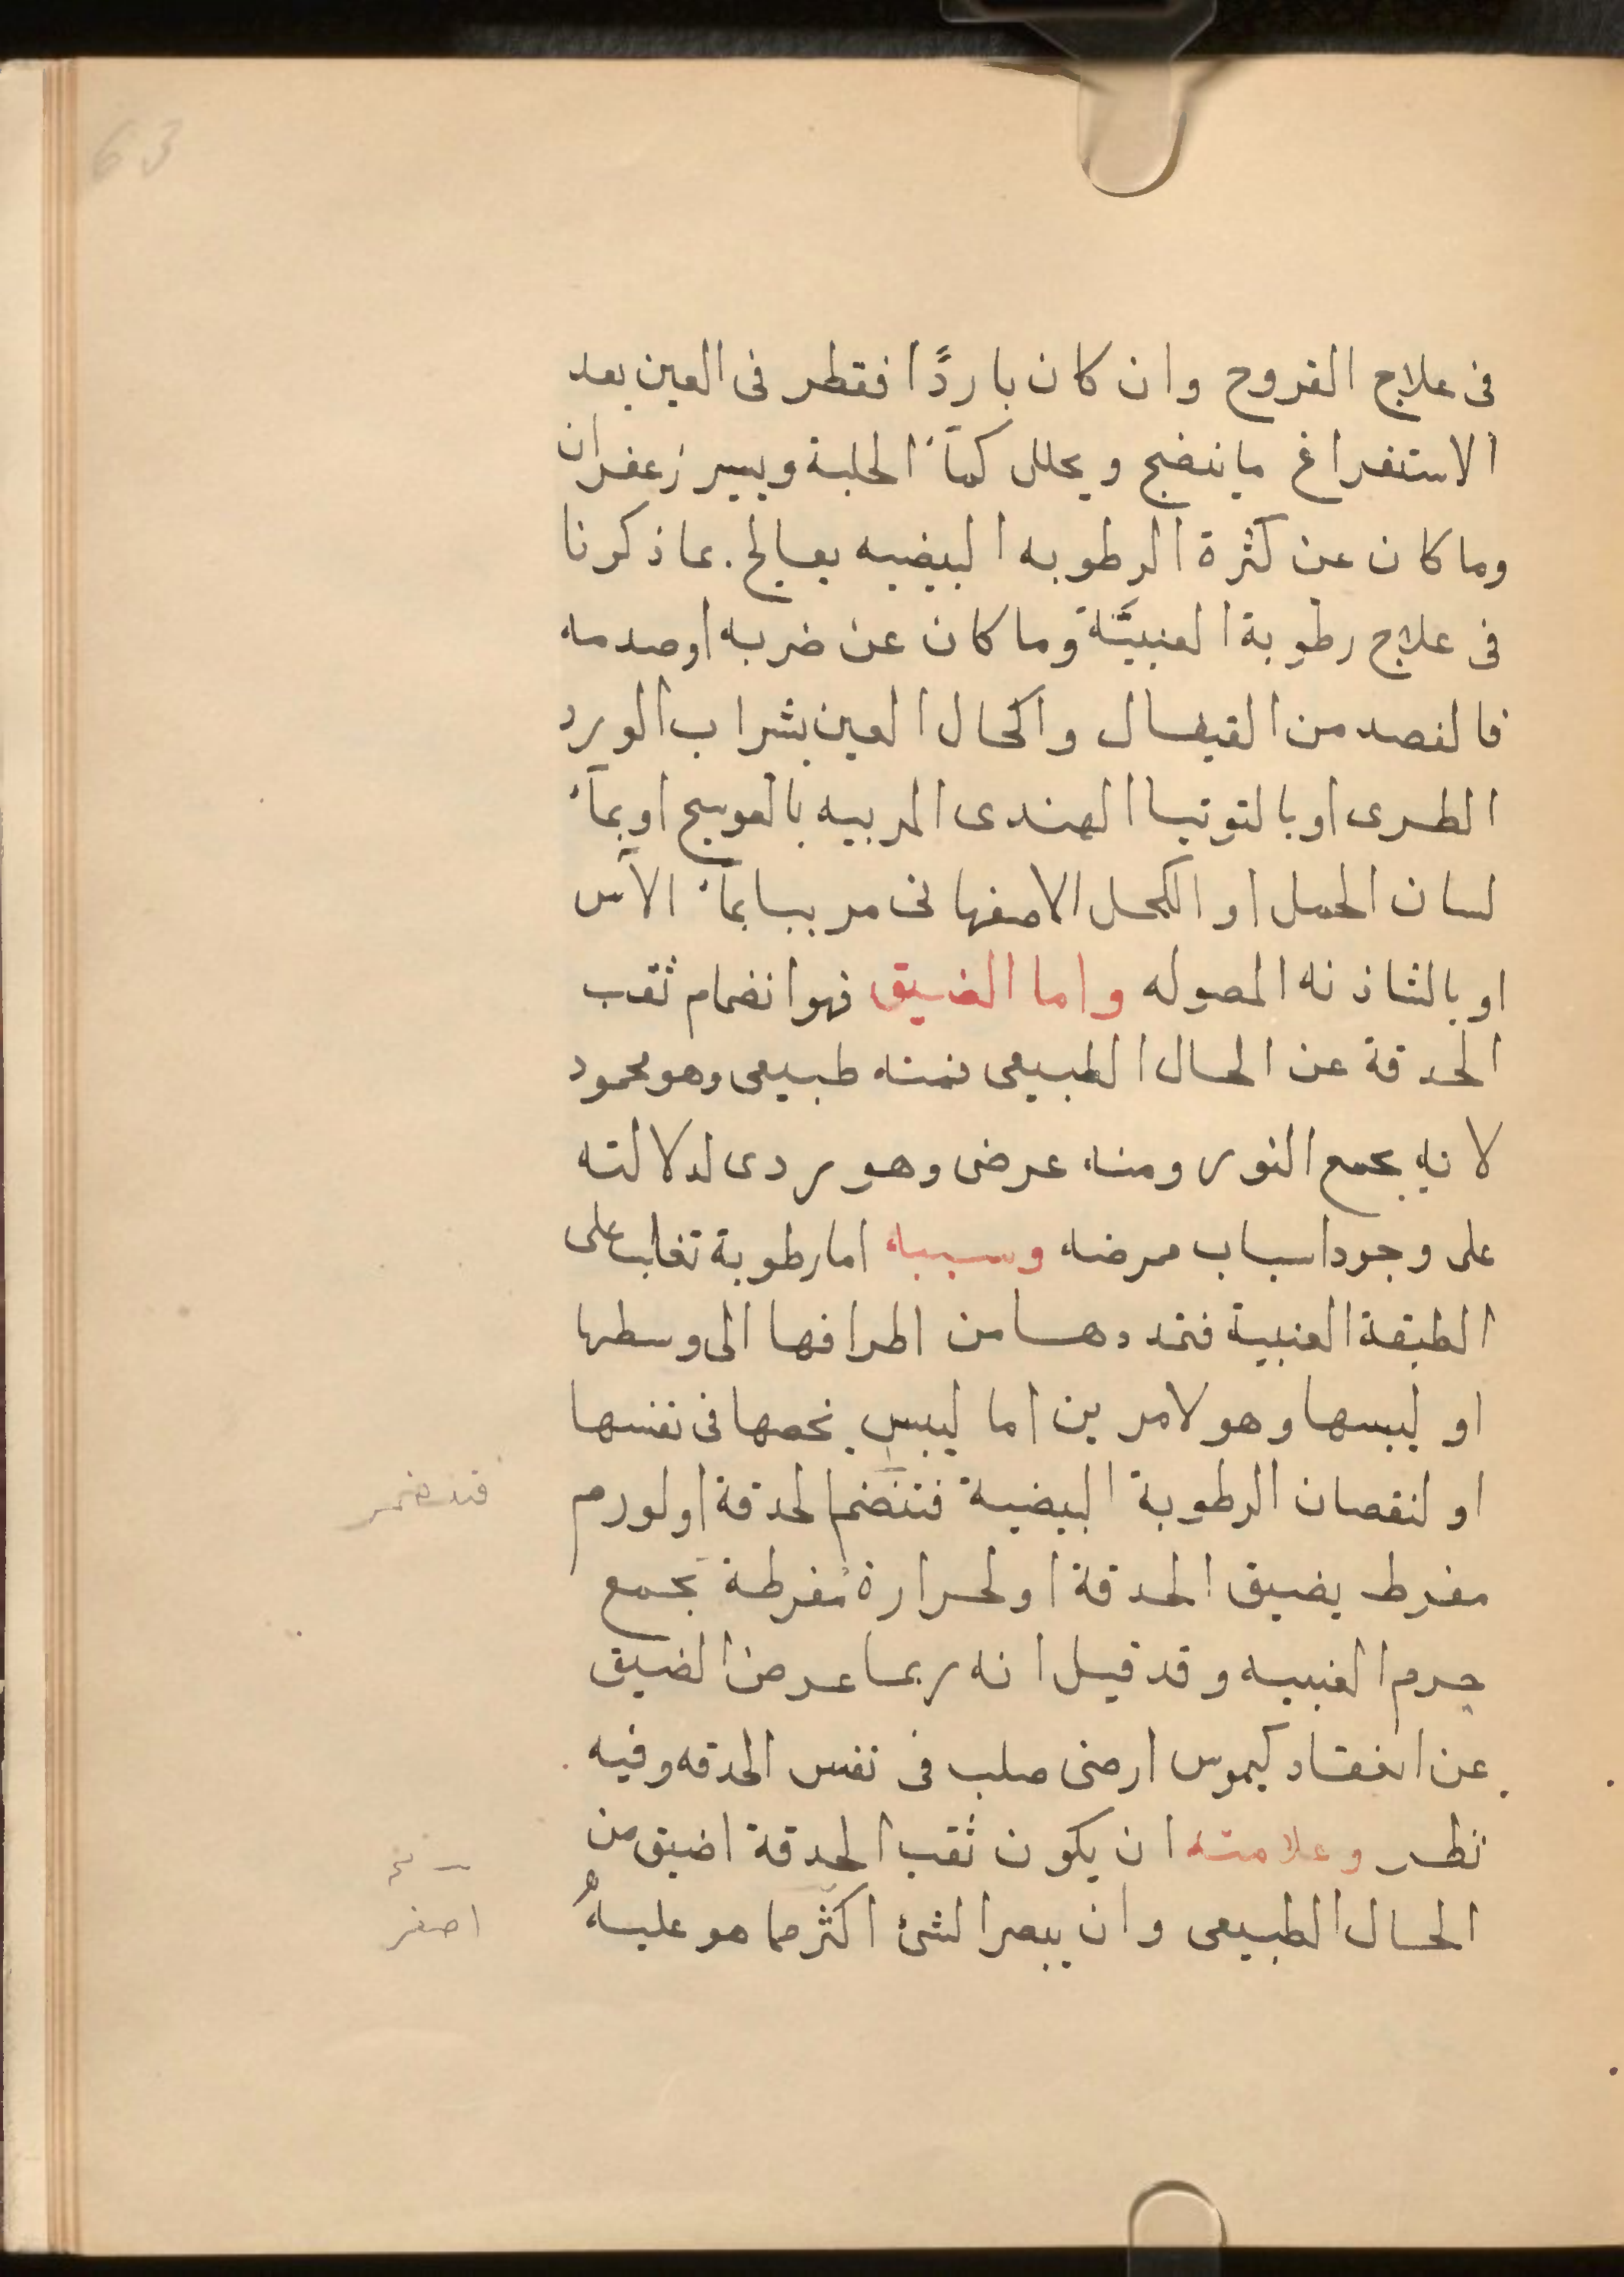 63
فى علاج القروح وان كان باردًا فقطر فى العين بعد
الاستفراغ ما ينضج ويحلل كمآء الحلبة ويسير زعفران
وما كان عن كثرة الرطوبه البيضيه يعالج بما ذكرنا
فى علاج رطوبة العنبيَّة وما كان عن ضربه او صدمه
فالفصد من القيفال واكحال العين بشراب الورد
الطرى او بالتوتيا الهندى المربيه بالعوسج او بمآء
لسان الحمل او الكحل الاصفهانى مرببا بمآء الآس
او بالشاذنه المصوله واما الضيق فهو انضمام ثقب
الحدقة عن الحال الطبيعى فمنه طبيعى وهو محمود
لانه يجمع النور ومنه عرضى وهو ردى لدلالته
على وجود اسباب مرضه وسببه اما رطوبة تغلب على
الطبقة العنبية فتمددها من اطرافها الى وسطها
او ليبسها وهو لامرين اما ليبس يخصها فى نفسها
او لنقصان الرطوبة البيضية فتنضم الحدقة او لورم
مفرط يضيق الحدقة او لحرارة مفرطة تجمع
جرم العنبيه وقد قيل انه ربما عرض الضيق
عن انعقاد كيموس ارضى صلب فى نفس الحدقه وفيه
نظر وعلامته ان يكون ثقب الحدقة اضيق من
الحال الطبيعى وان يبصر الشئ اكثر مما هو عليه
اصغر